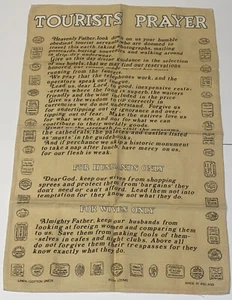 TOURISTS PRAYER
"Heavenly Father, look down on us your humble
obedient tourist servants, who are doomed to
travel this earth, taking photographs, mailing
postcards, buying souvenirs and walking around
in drip-dry underwear.
Give us this day divine guidance in the selection
of our hotels, that we may find our reservations
honoured, our rooms made up and hot water
running from the faucets.
We pray that the telephones work, and the
operators speak our tongue.
Lead us, dear Lord, to good, inexpensive restau-
rants where the food is superb, the waiters
friendly and the wine included in the price.
Give us the wisdom to tip correctly in
currencies we do not understand. Forgive us
for undertipping out of ignorance and over-
tipping out of fear. Make the natives love us
for what we are, and not for what we can
contribute to their worldly goods.
Grant us the strength to visit the museums,
the cathedrals, the palaces and castles listed
as 'musts' in the guide books.
And if perchance we skip a historic monument
to take a nap after lunch, have mercy on us,
for our flesh is weak.
FOR HUSBANDS ONLY
"Dear God, keep our wives from shopping
sprees and protect them from 'bargains' they
don't need or can't afford. Lead them not into
temptation for they know not what they do.
FOR WIVES ONLY
"Almighty Father, keep our husbands from
looking at foreign women and comparing them
to us. Save them from making fools of them-
selves in cafes and night clubs. Above all
do not forgive them their trespasses for they
know exactly what they do.
MADE IN IRELAND